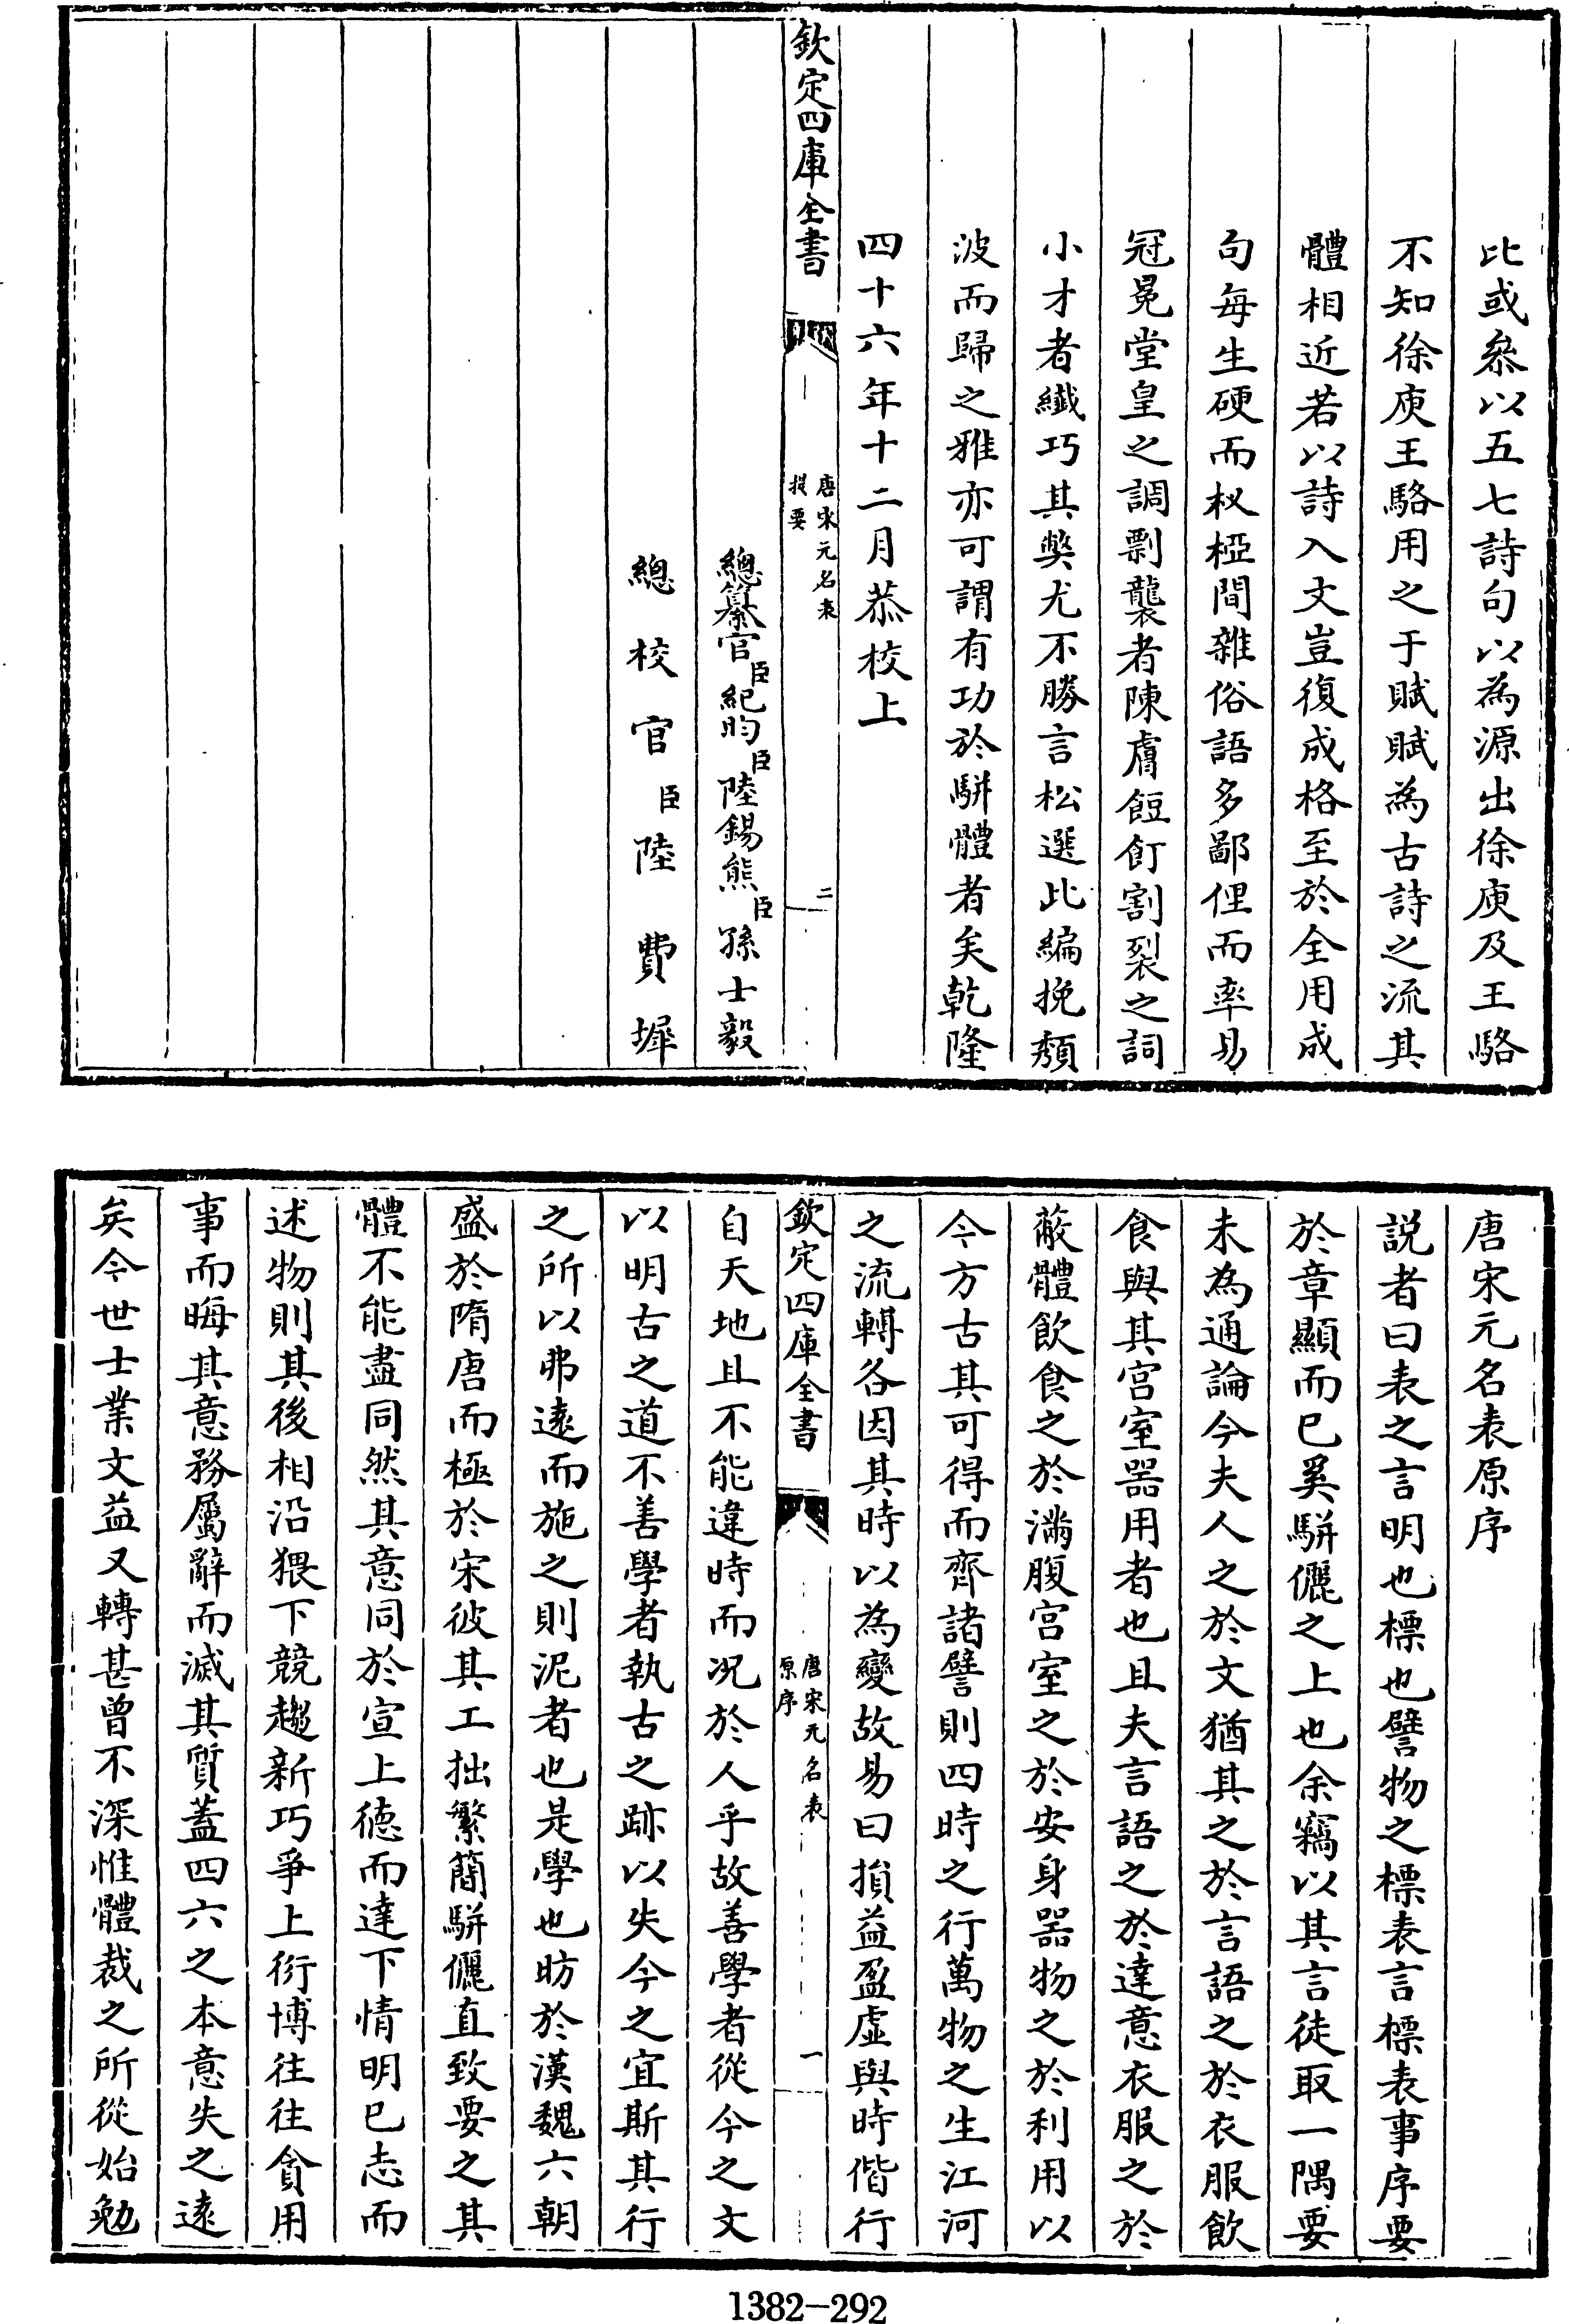 比或叅以五七詩句以為源出徐庾及王駱
不知徐庾王駱用之于賦賦為古詩之流其
體相近若以詩入文豈復成格至於全用成
句每生硬而杈椏間雜俗語多鄙俚而率易
冠冕堂皇之調剽襲者陳膚餖飣割裂之詞
小才者纎巧其獘尤不勝言松選此編挽頽
波而歸之雅亦可謂有功於駢體者矣乾隆
四十六年十二月恭校上
欽定四庫全書
唐宋元名表
提要
二
總纂官臣紀昀臣陸錫熊臣孫士毅
總校官臣陸費墀
唐宋元名表原序
説者曰表之言明也標也譬物之標表言標表事序要
於章顯而已奚駢儷之上也余竊以其言徒取一隅要
未為通論今夫人之於文猶其之於言語之於衣服飲
食與其宫室器用者也且夫言語之於達意衣服之於
蔽體飲食之於滿腹宫室之於安身器物之於利用以
今方古其可得而齊諸譬則四時之行萬物之生江河
之流轉各因其時以為變故易曰損益盈虚與時偕行
欽定四庫全書
唐宋元名表
原序
一
自天地且不能違時而况於人乎故善學者從今之文
以明古之道不善學者執古之跡以失今之宜斯其行
之所以弗遠而施之則泥者也是學也昉於漢魏六朝
盛於隋唐而極於宋彼其工拙繁簡駢儷直致要之其
體不能盡同然其意同於宣上徳而達下情明已志而
述物則其後相沿猥下競趨新巧爭上衒博往往貪用
事而晦其意務屬辭而滅其質蓋四六之本意失之遠
矣今世士業文益又轉甚曾不深惟體裁之所從始勉
1382-292